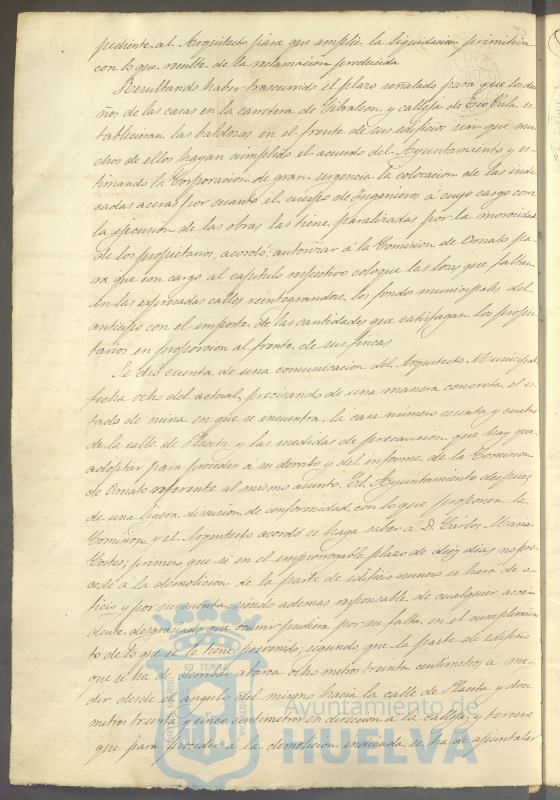 pediente al Arquitecto para que amplíe la liquidacion primitiva
con lo que resulte de la reclamacion producida
Resultando haber trascurrido el plazo señalado para que los due
ños de las casas en la carretera de Gibraleon y calleja de es
tablecieran las baldosas en el frente de sus edificios sin que mu
chos de ellos hayan cumplido el acuerdo del Ayuntamiento y es
timando la Corporacion de gran urgencia la colocacion de las indi
cadas aceras por cuanto el cuerpo de Ingenieros á cuyo cargo corre
la ejecucion de las obras las tiene paralizadas por la morosidad
de los propietarios, acordó: autorizar á la Comision de Ornato pa
ra que con cargo al capítulo respectivo coloque las losas que faltan
en las expresadas calles reintegrandose los fondos municipales del
anticipo con el importe de las cantidades que satisfagan los propie
tarios en proporcion al frente de sus fincas
Se dió cuenta de una comunicacion del Arquitecto Municipal
fecha ocho del actual, precisando de una manera concreta el es
tado de ruina en que se encuentra la casa número y cuatro
de la calle de Placeta y las medidas de precaucion que hay que
adoptar para proceder a su derribo y del informe de la Comision
de Ornato referente al mismo asunto. El Ayuntamiento despues
de una ligera discusion de conformidad con lo que proponen la
Comision y el Arquitecto acordó se haga saber a D. Carlos Maria
Cortes; primero que si en el improrrogable plazo de diez dias no pro
cede á la demolicion de la parte de edificio ruinoso se hará de o
ficio y por su cuenta, siendo ademas responsable de cualquier acci
dente desgraciado que ocurrir pudiera por su falta en el cumplimien
to de lo que se le tiene prevenido; segundo, que la parte de edificio
que se ha de derribar abarca ocho metros treinta centimetros a me
dir desde el angulo del mismo hacia la calle de Placeta y doce
metros treinta y cinco centimetros en direccion á la calleja; y tercero
que para proceder á la demolicion indicada se ha de apuntalar
ET TERRE
Ayuntamiento de
HUELVA